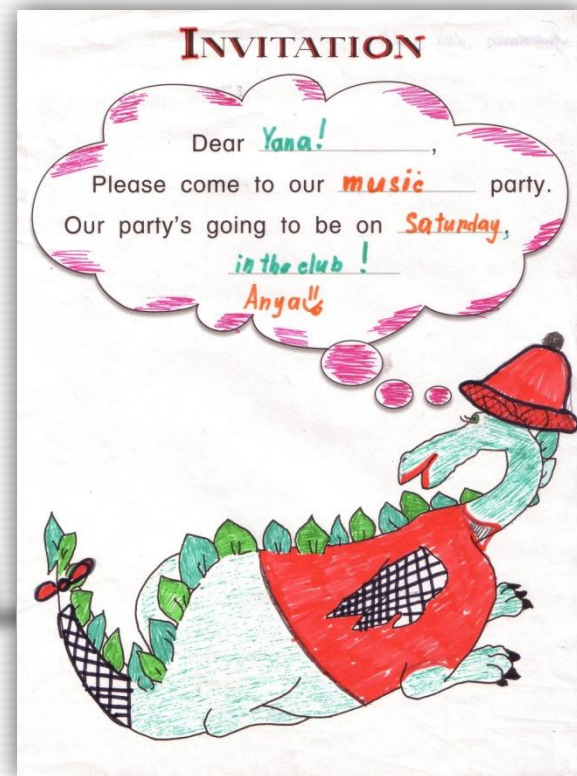 INVITATION
Dear Yana! ,
Please come to our music party.
Our party's going to be on Saturday,
in the club !
Anya